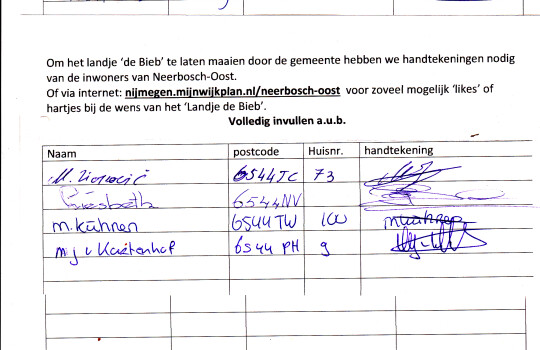 Om het landje 'de Bieb' te laten maaien door de gemeente hebben we handtekeningen nodig
van de inwoners van Neerbosch-Oost.
Of via internet: nijmegen.mijnwijkplan.nl/neerbosch-oost voor zoveel mogelijk 'likes' of
hartjes bij de wens van het 'Landje de Bieb'.
Volledig invullen a.u.b.
Naam postcode Huisnr. handtekening
6544JC 73
6544NV
M. Kühnen 6544 TW
6544 PH 9